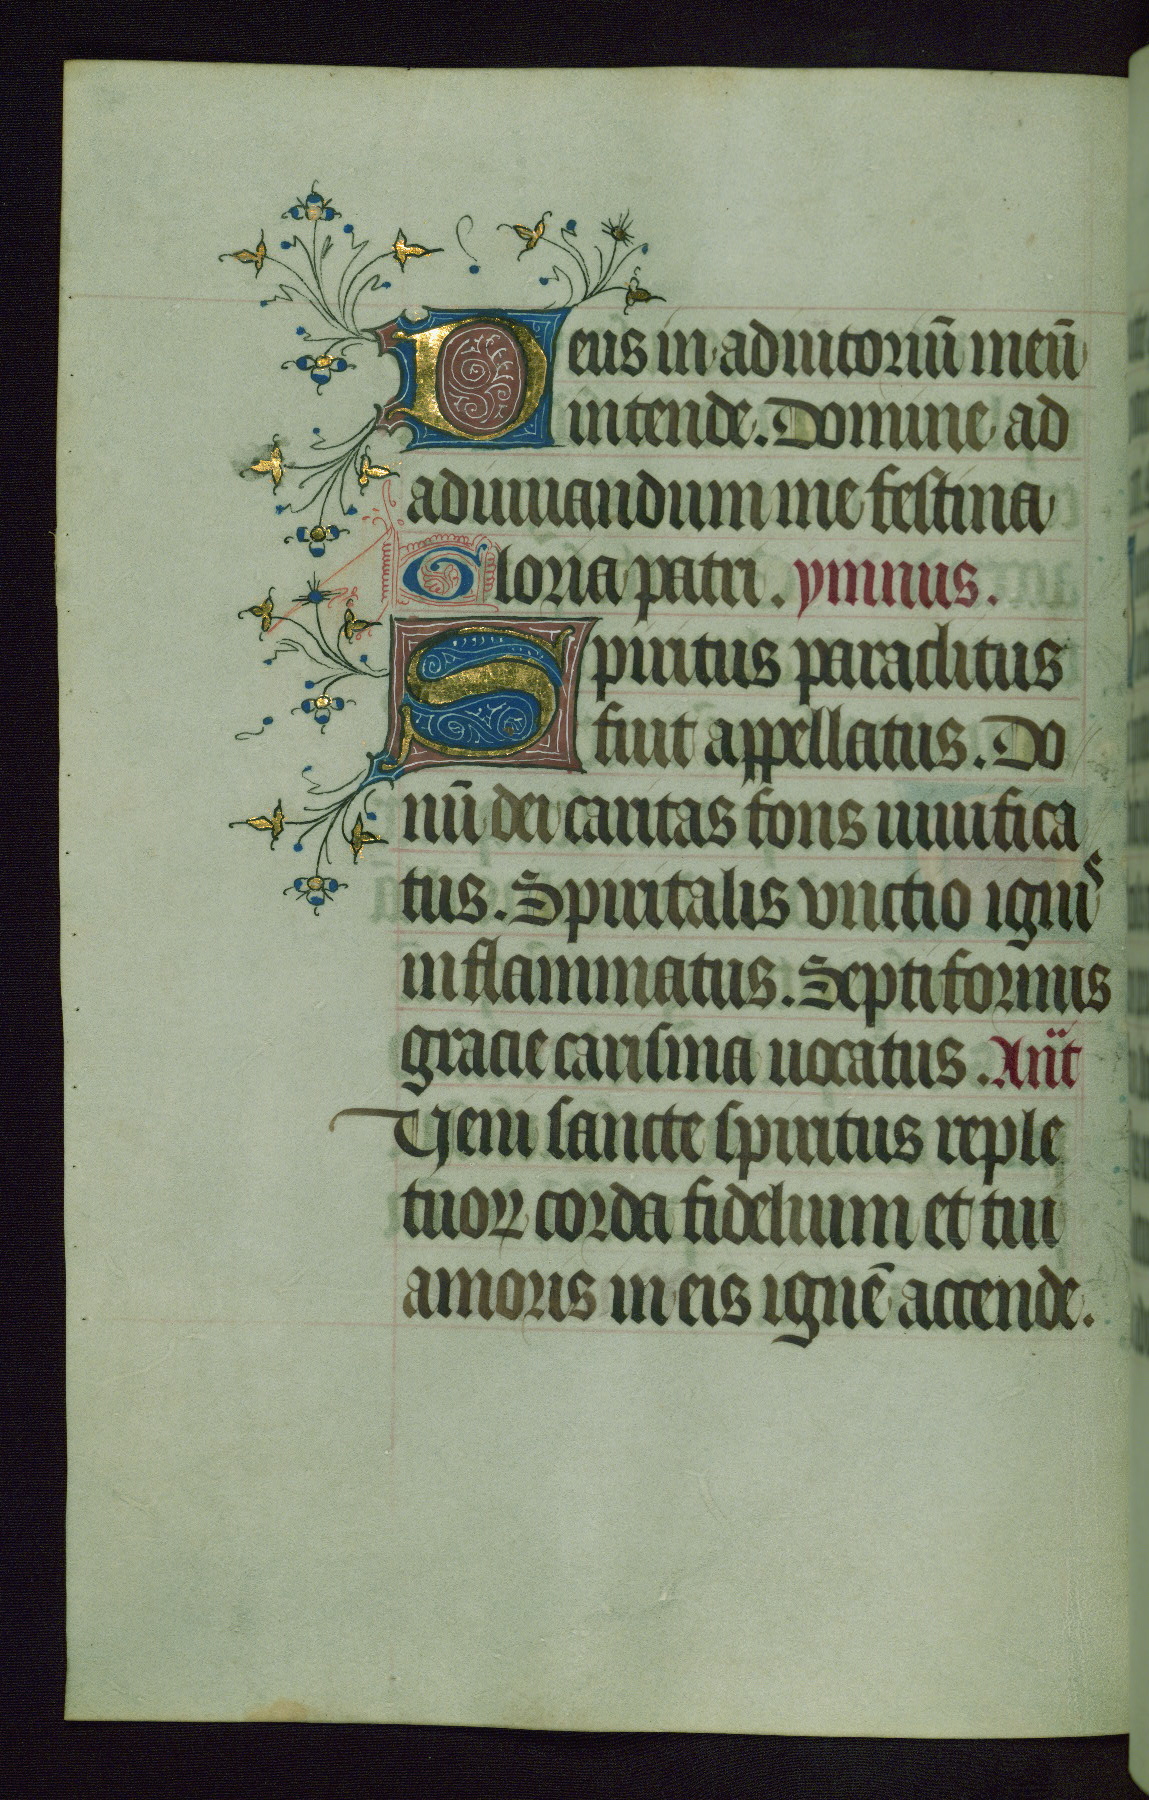 Deus in adiutoriū meū
intende. Domine ad
adiuuandum me festina
Gloria patri. ymnus.
Spiritus paraclitus
fuit appellatus. Do
nū dei caritas fons uiuifica
tus. Spiritalis vnctio igniˢ
inflammatus. Septiformis
gracie carisma uocatus. Añt
Veni sancte spiritus reple
tuoꝝ corda fidelium et tui
amoris in eis ignē accende.